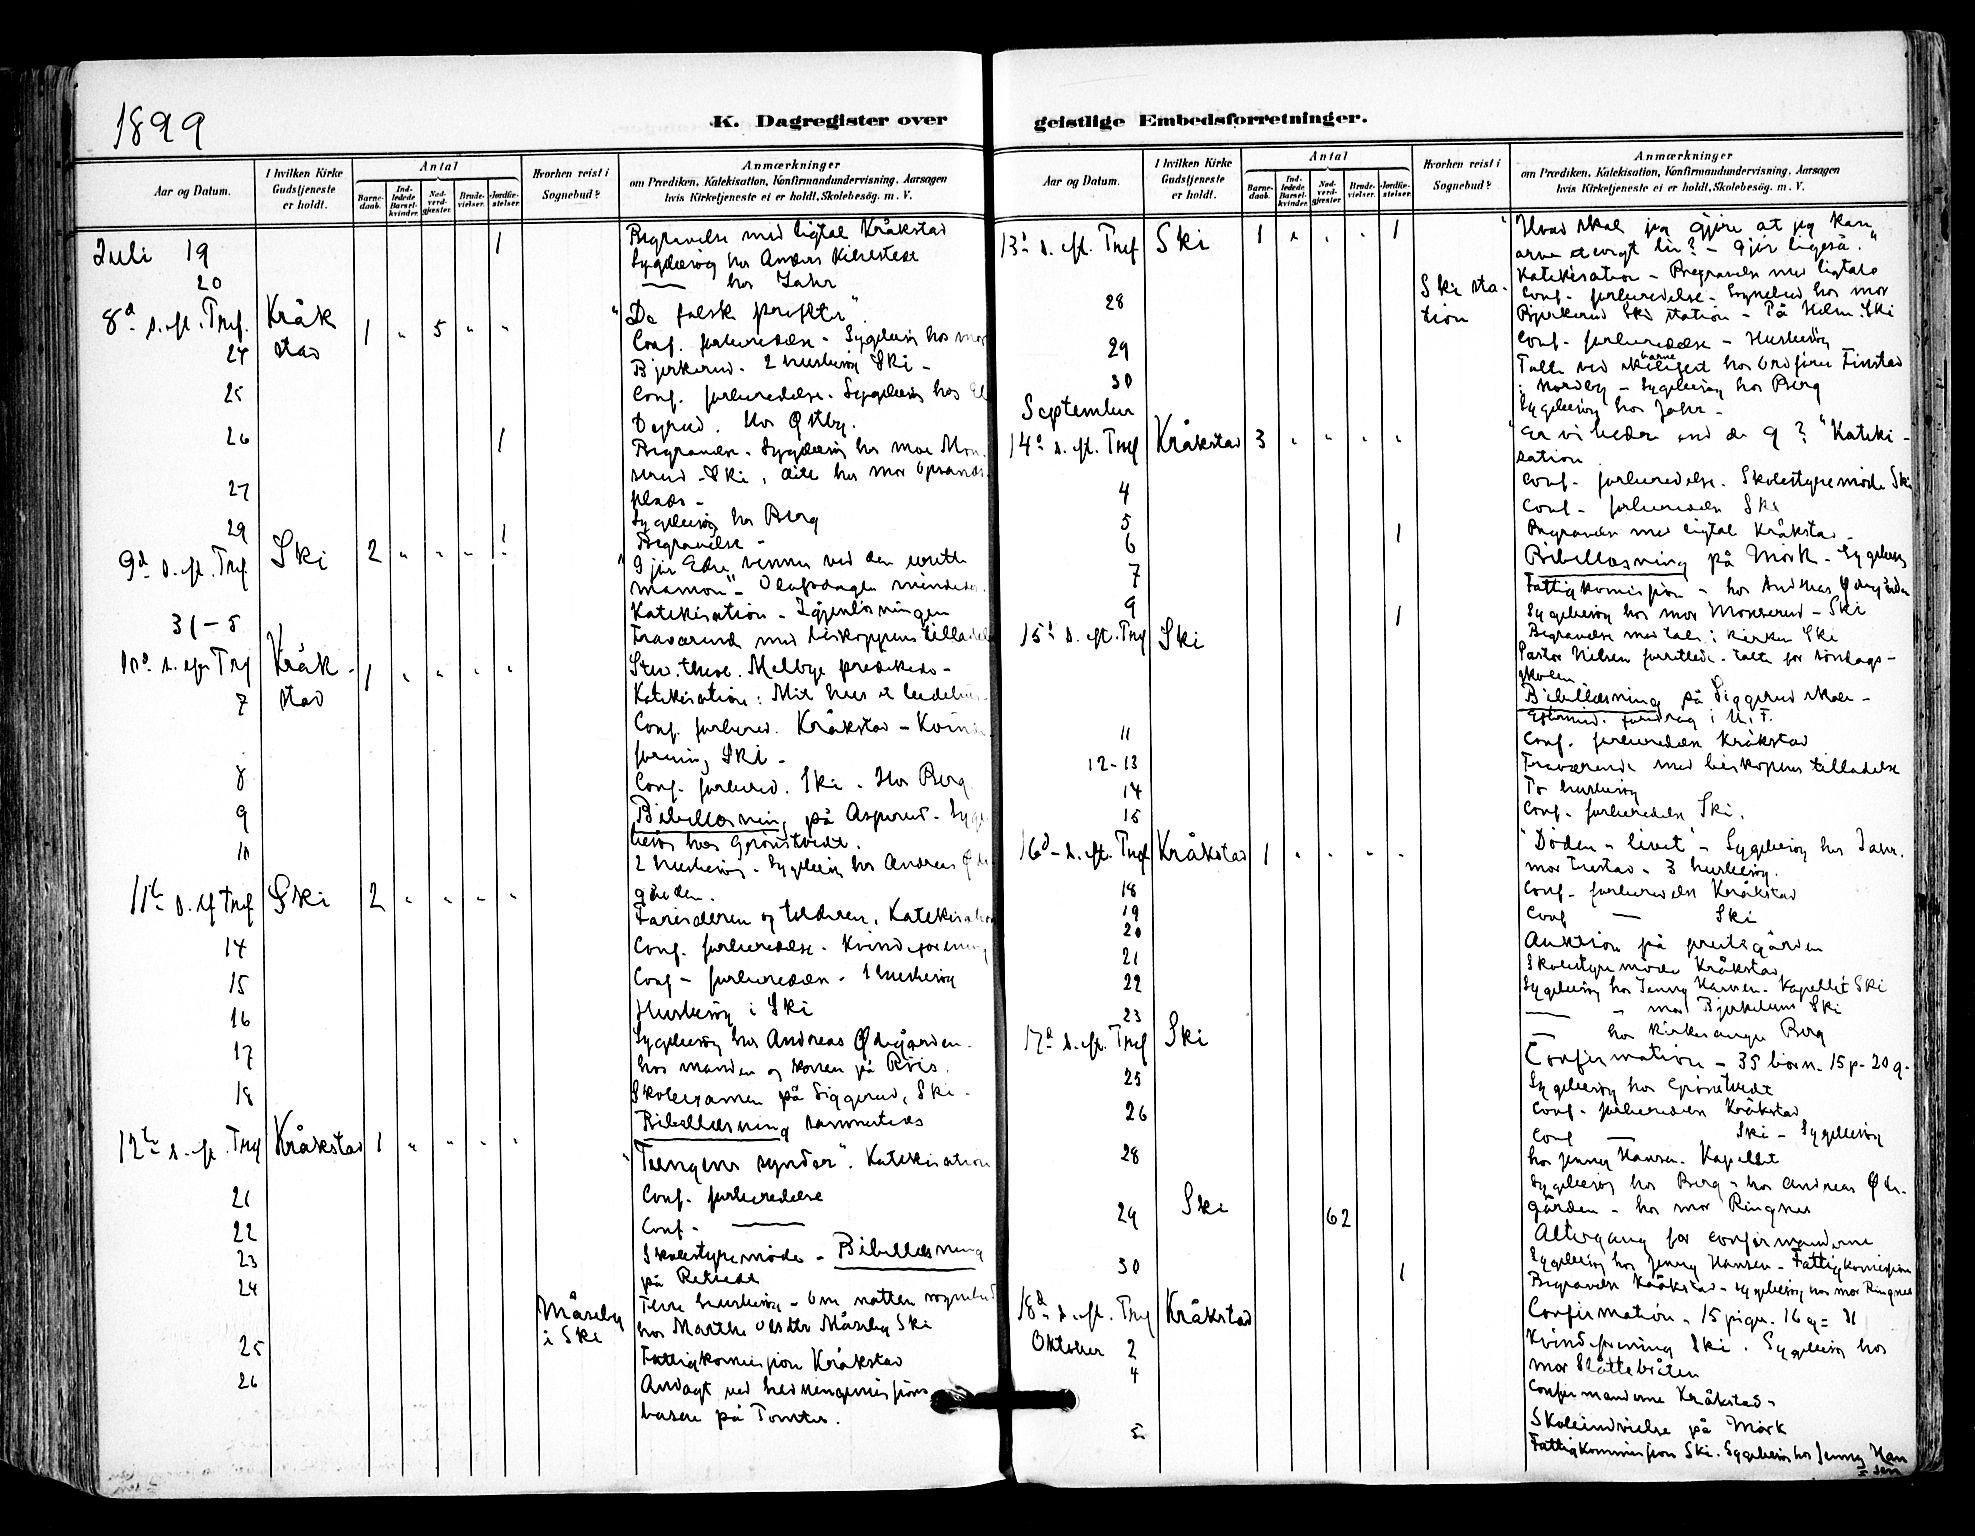 1899
K. Dagregister over
Aar og Datum.
I hvilken Kirke Gudstjeneste er holdt.
Antal
Barne-daab.
Ind-ledede Barsel-kvinder.
Nad-verd-gjæster.
Brude-vielser.
Jordfæ-stelser.
Hvorhen reist i Sognebud?
Anmærkninger
om Prædiken, Katekisation, Konfirmandundervisning, Aarsagen
hvis Kirketjeneste ei er holdt, Skolebesøg. m. V.
Juli 19 1 Begravelse med ligtal Kråkstad
Sygebesøg hos Anders
20 hos Jahr
8d s. eft. Tref. Kråkstad 1 " 5 " " "De falsk
Conf. forberedelse - Sygebesøg hos mor
24 Bjerkerud. 2 husbesøg Ski -
25 Conf. forberedelse. Sygebesøg hos
Dyrud. Hos Østby.
26 1 Begravelse. Sygebesøg hos mor
Ski, hos mor
27 plads -
Sygebesøg hos Berg
29 1 Begravelse -
9d s. eft. Tref Ski 2 " " " " "Gjør Eder venner ved den urette
mamon" - Olafsdagen mindedes
Katekisation - Igjenløsningen
31-5 Fraværende med biskoppens tilladelse
10d s. eft Tref Kråkstad 1 " " " " Stud. theol. Melbye prædikede -
7 Katekisation: Mit hus et bedehus -
Conf. forbered. Kråkstad - Kvinde
forening Ski -
8 Conf. forbered. Ski. Hos Berg
9 Bibellæsning på Asperud. Syge
besøg hos Grønstvedt.
10 2 husbesøg - Sygebesøg hos Andreas Øde
gården.
11te s. ef Tref Ski 2 " " " " Farisæeren og tolderen. Katekisation
14 Conf. forberedelse. Kvindeforening
15 Conf - forberedelse. 1 husbesøg
16 Husbesøg i Ski
17 Sygebesøg hos Andreas Ødegården.
hos manden og konen på Riis.
18 Skoleexamen på Siggerud, Ski.
Bibellæsning sammesteds
12te s. ef. Tref Kråkstad 1 " " " " "Tungens synder". Katekisation
21 Conf. forberedelse
22 Conf -
23 Skolestyremøde - Bibellæsning
på
24 Måseby i Ski husbesøg - Om natten sognebud
hos Marthe Olsdtr Måseby Ski
25 Fattigkommission Kråkstad
26 Andagt ved hedningemissions
basar på Tomter.
geistlige Embedsforretninger.
Aar og Datum.
I hvilken Kirke Gudstjeneste er holdt.
Antal
Barne-daab.
Ind-ledede Barsel-kvinder.
Nad-verd-gjæster.
Brude-vielser.
Jordfæ-stelser.
Hvorhen reist i Sognebud?
Anmærkninger
om Prædiken, Katekisation, Konfirmandundervisning, Aarsagen
hvis Kirketjeneste ei er holdt, Skolebesøg. m. V.
13d s. eft. Tref Ski 1 " " " 1 "Hvad skal jeg gjøre at jeg kan
arve evigt liv? - Gjør ligeså."
Katekisation - Begravelse med ligtale
28 Ski station Conf. forberedelse - Sognebud hos mor
Bjerkerud Ski station - På Holm Ski
29 Conf. forberedelse - Husbesøg
Tale ved barne hos ordfører Finstad
30 i Nordby - Sygebesøg hos Berg
September Sygebesøg hos Jahr -
14d s. eft. Tref Kråkstad 3 " " " " "Er vi bedre end de 9?" Kateki-
sation
4 Conf. forberedelse. Skolestyremøde Ski
5 Conf - forberedelse Ski
6 1 Begravelse med ligtal Kråkstad -
7 Bibellæsning på Mørk - Sygebesøg
Fattigkomission - hos Andreas Ødegården
9 1 Sygebesøg hos mor Monserud - Ski
Begravelse med tale i kirken Ski
15d s. eft. Tref Ski Pastor Nilsen forrettede. talte for søndags-
skolen
Bibellæsning på Siggerud skole -
Eftermid. foredrag i U. F.
11 Conf. forberedelse Kråkstad
12-13 Fraværende med biskopens tilladelse
14 To husbesøg
15 Conf. forberedelse Ski.
16d s. eft. Tref Kråkstad 1 " " " " "Døden - livet" - Sygebesøg hos Jahr.
mor - 3 husbesøg.
18 Conf. forberedelse Kråkstad
19 Conf — Ski
20 Auktion på prestegården
21 Skolestyremøde Kråkstad
22 Sygebesøg hos Jenny Hansen. Kapellet Ski
— " mor Ski
23 — hos kirkesanger Berg
17d s. eft. Tref Ski Confirmation - 35 børn. 15 p - 20 g.
25 Sygebesøg hos Grønstvedt
Conf. forberedelse Kråkstad
26 Conf — Ski - Sygebesøg
hos Jenny Hansen. Kapellet
28 Sygebesøg hos Berg - hos Andreas Øde-
gården - hos mor Ringnes
29 Ski 62 Altergang for confirmanderne
Sygebesøg hos Jenny Hansen - Fattigkomission
30 1 Begravelse Kråkstad - sygebesøg hos mor Ringnes
18d s. eft. Tref Kråkstad Confirmation. 15 piger. 16 g = 31
Oktober 2 Kvindeforening Ski. Sygebesøg hos
mor Slåttebråten
4 Confirmanderne Kråkstad -
Skoleindvielse på Mørk
5 Fattigkommission Ski. Sygebesøg hos Jenny Han
sen